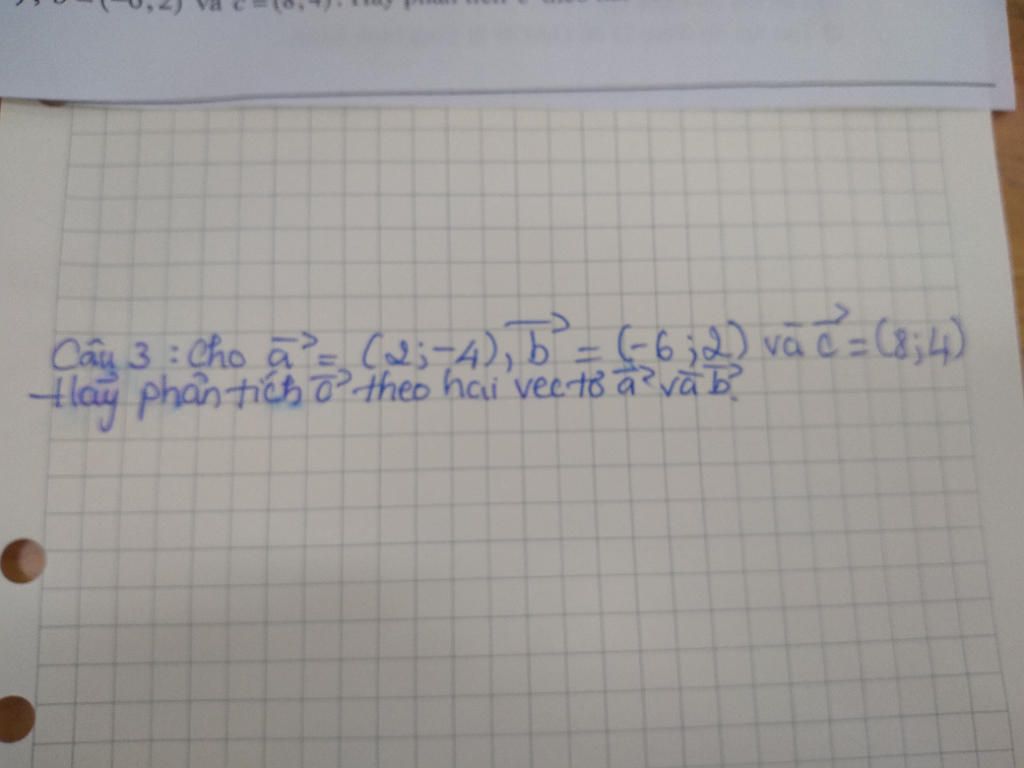 b = (-6; 2) và c = (8; 4). Hãy phân tích c theo hai
Câu 3 : Cho a⃗ = (2;-4), b⃗ = (-6;2) và c⃗ = (8;4)
Hãy phân tích c⃗ theo hai vectơ a⃗ và b⃗.